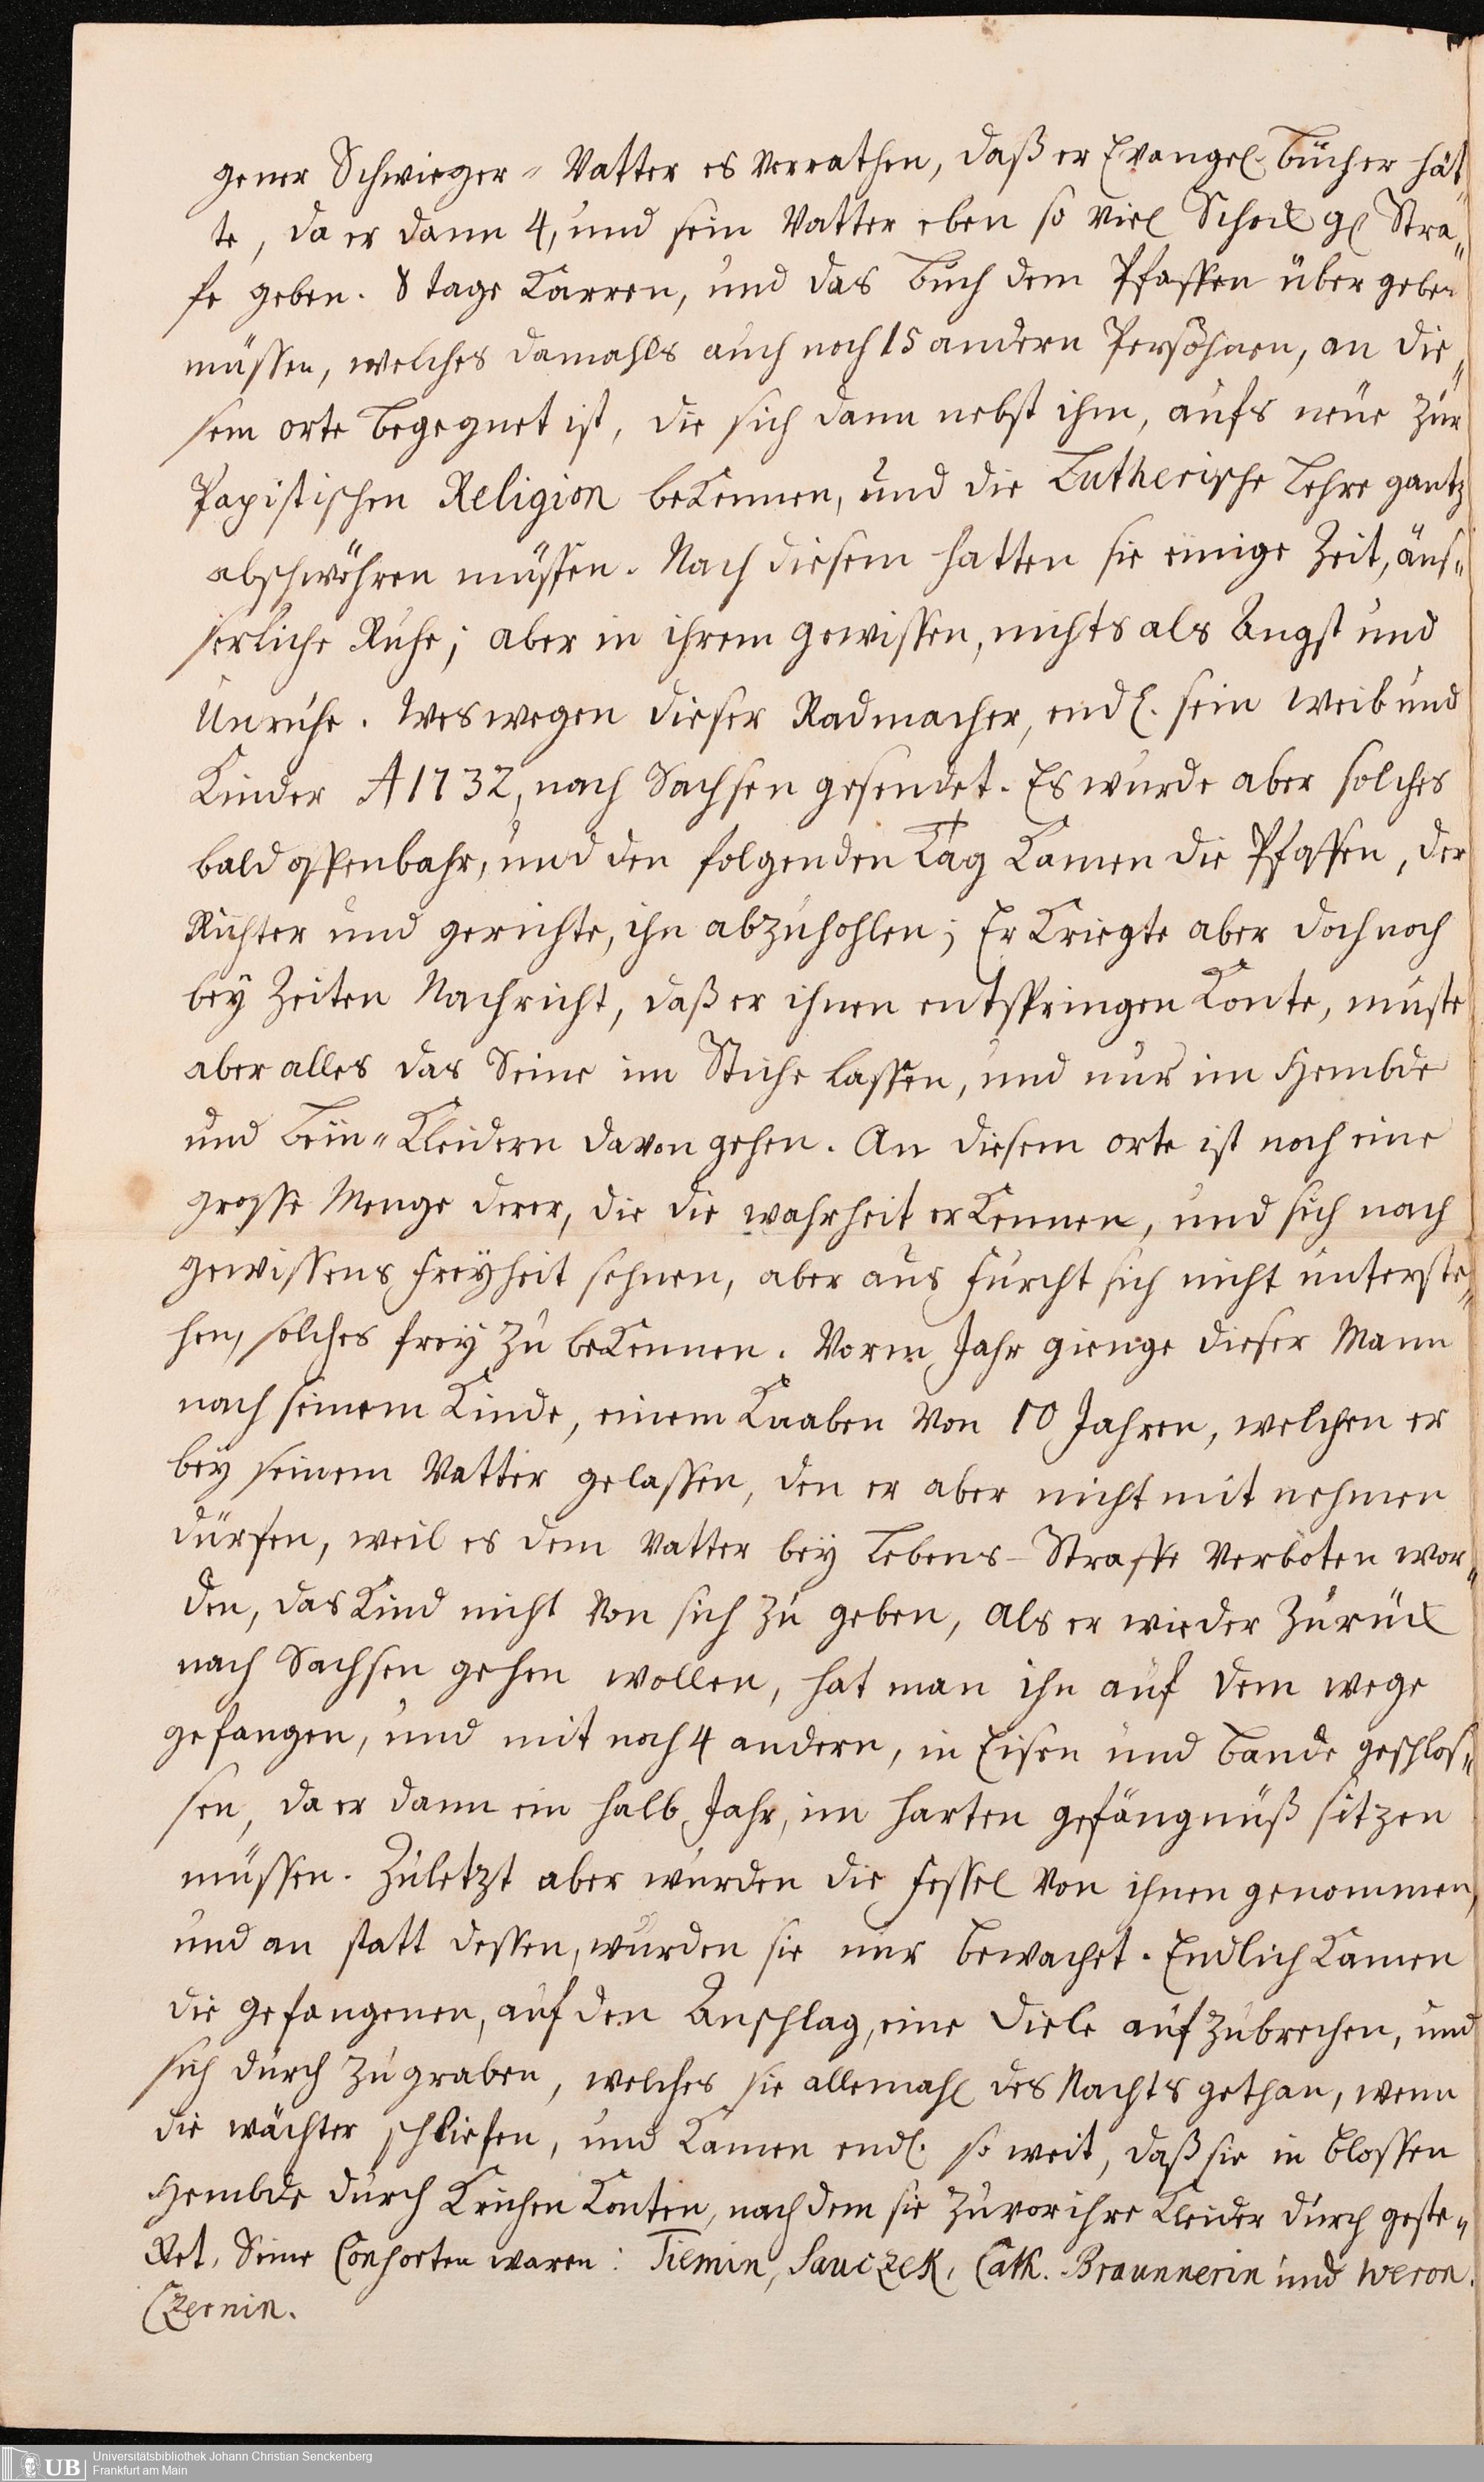 gener Schwieger-Vatter es verrathen, daß er Evangel. Bücher hät„
te, da er dann 4, und sein Vatter eben so viel Schock gl Stra„
fe geben. 8 tage Karren, und das Buch dem Pfaffen über geben
müssen, welches damahls auch noch 15 andern Persohnen, an die„
sem orte begegnet ist, die sich dann nebst ihm, aufs neue zur
Papistischen Religion bekennen, und die Lutherische Lehre gantz
abschwöhren müssen. Nach diesem hatten sie einige Zeit, äus„
serliche Ruhe; aber in ihrem gewissen, nichts als Angst und
Unruhe. Weswegen dieser Radmacher, endl. sein Weib und
Kinder A 1732, nach Sachsen gesendet. Es wurde aber solches
bald offenbahr, und den folgenden Tag kamen die Pfaffen, der
Richter und gerichte, ihn abzuhohlen; Er kriegte aber doch noch
bey Zeiten Nachricht, daß er ihnen entspringen konte, muste
aber alles das Seine im Stiche lassen, und nur im Hembde
und Bein-Kleidern davon gehen. An diesem orte ist noch eine
grosse Menge derer, die die wahrheit erkennen, und sich nach
gewissens freyheit sehnen, aber aus furcht sich nicht unterste„
hen, solches frey zu bekennen. Vorm Jahr gienge dieser Mann
nach seinem Kinde, einem Knaben von 10 Jahren, welchen er
bey seinem Vatter gelassen, den er aber nicht mit nehmen
dürfen, weil es dem Vatter bey Lebens-Straffe verboten wor„
den, das Kind nicht von sich zu geben, Als er wieder zurück
nach Sachsen gehen wollen, hat man ihn auf dem wege
gefangen, und mit noch 4 andern, in Eisen und Bande geschlos„
sen, da er dann ein halb Jahr, im harten gefängnüß sitzen
müssen. Zuletzt aber wurden die Fessel von ihnen genommen,
und an statt dessen, wurden sie nur bewachet. Endlich kamen
die gefangenen, auf den Anschlag, eine Diele auf zubrechen, und
sich durch zu graben, welches sie allemahl des Nachts gethan, wenn
die wächter schliefen, und kamen endl. so weit, daß sie in blossen
Hembde durch krichen konten, nach dem sie zuvor ihre Kleider durch geste„
ket. Seine Consorten waren: Tiemin, Sauczek, Cath. Braunnerin und Weron.
Czernin.
UB Universitätsbibliothek Johann Christian Senckenberg
Frankfurt am Main